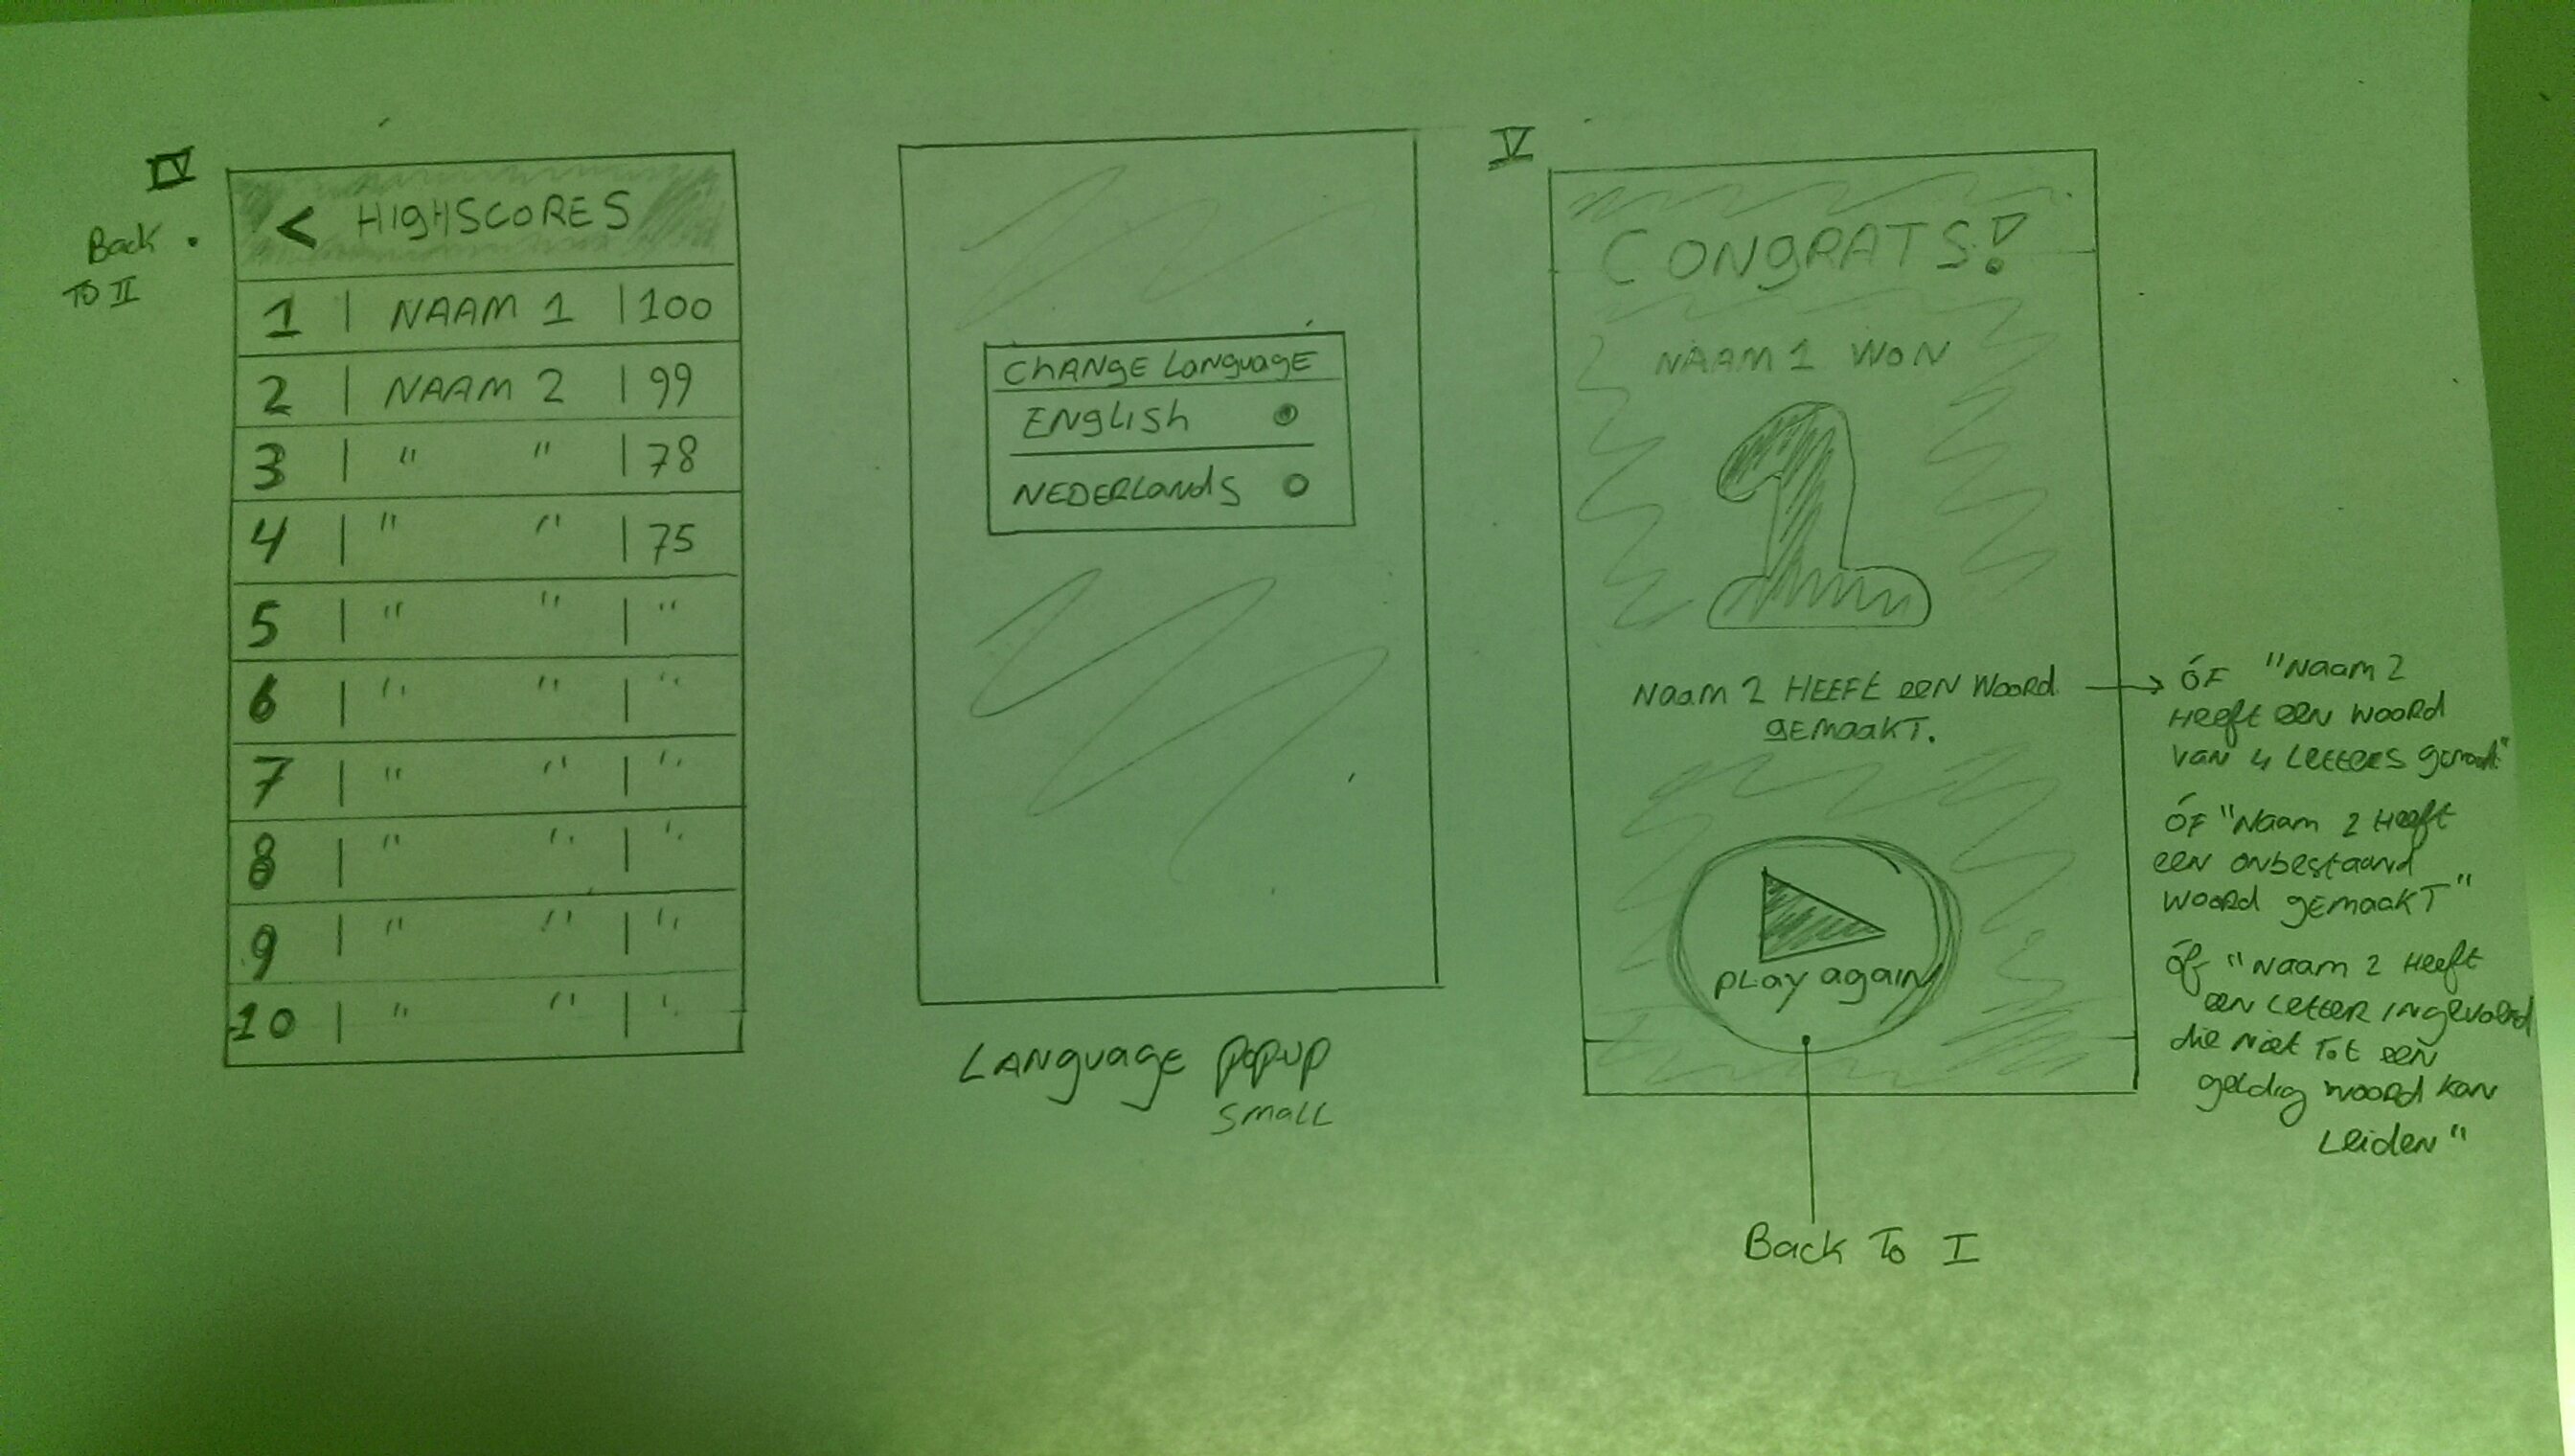 IV
Back
TO II
< HIGHSCORES
1 | NAAM 1 | 100
2 | NAAM 2 | 99
3 | " " | 78
4 | " " | 75
5 | " " | "
6 | " " | "
7 | " " | "
8 | " " | "
9 | " " | "
10 | " " | "
CHANGE LANGUAGE
ENGLISH
NEDERLANDS
LANGUAGE POPUP
SMALL
V
CONGRATS!
NAAM 1 WON
1
NAAM 2 HEEFT EEN WOORD
GEMAAKT.
PLAY AGAIN
Back To I
ÓF "NAAM 2
HEEFT EEN WOORD
VAN 4 LETTERS gemaakt"
ÓF "NAAM 2 HEEFT
EEN ONBESTAAND
WOORD GEMAAKT"
ÓF "NAAM 2 HEEFT
EEN LETTER INGEVOERD
die NIET TOT EEN
geldig woord kan
Leiden"